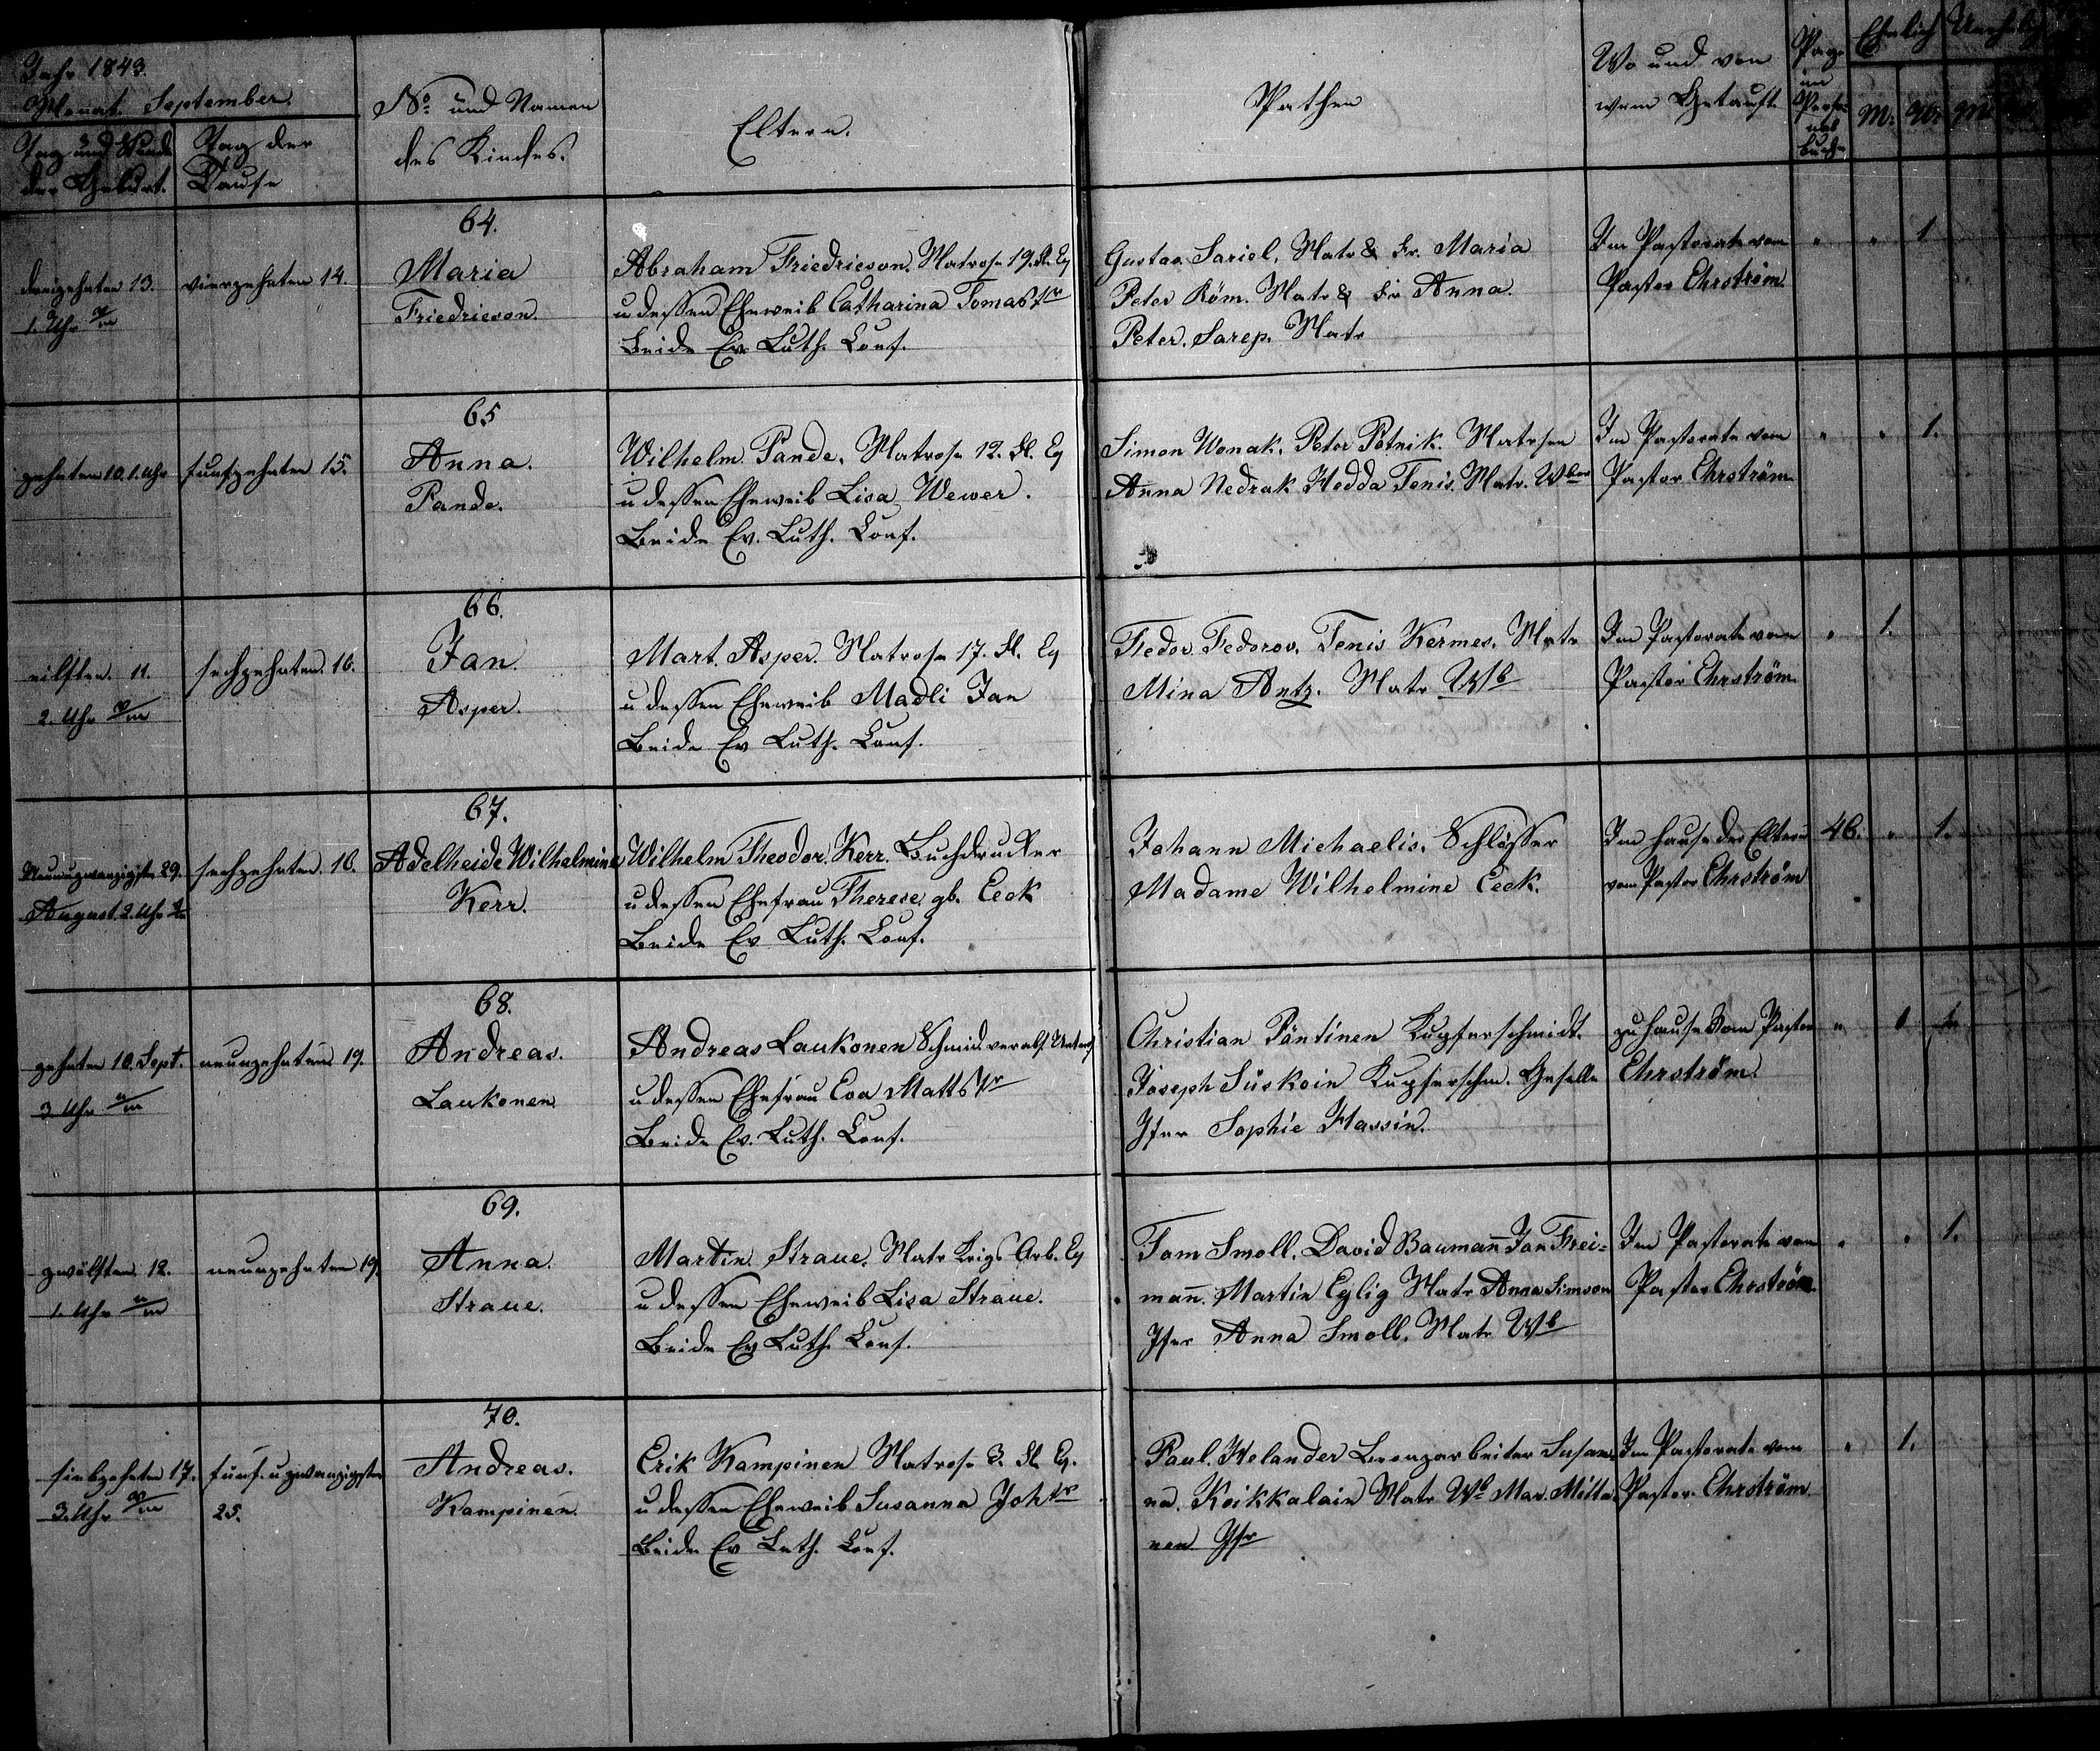 Jahr 1843.
Monat September.
Tag und Stunde der Geburt.
Tag der Taufe
No. und Namen des Kindes.
Eltern.
Pathen
Wo und von wem Getauft
Page im Personalbuche
Ehelich
M. W. M.
64.
dreizehnten 13.
1. Uhr
vierzehnten 14.
Maria
Friedricson.
Abraham Friedricson. Matrose 19. Fl. Eq
u dessen Eheweib Catharina Tomas tr
beide Ev Luth. Conf.
Gustav Sariel, Matr & Fr. Maria
Peter Röm. Matr & Fr Anna.
Peter. Sarep. Matr
Im Pastorate vom
Pastor Ehrström
" " 1
65
zehnten 10. 1. Uhr
funfzehnten 15.
Anna.
Pande.
Wilhelm Pande, Matrose 12. Fl. Eq
u dessen Eheweib Lisa Wewer.
Beide Ev. Luth. Conf.
Simon Wonak, Peter Potnik. Matrosen
Anna Nedrak Hedda Tenis. Matr. Wber
Im Pastorate vom
Pastor Ehrström
" " 1.
66.
eilften. 11.
2. Uhr
sechzehnten. 16.
Jan.
Asper.
Mart. Asper. Matrose 17. Fl. Eq
u dessen Eheweib Madli Jan
Beide Ev Luth. Conf.
Fedor Fedorov, Tenis Kermes. Matr
Mina Antz. Matr Wb
Im Pastorate vom
Pastor Ehrström
" 1.
67.
Neunundzwanzigsten 29.
August. 2. Uhr
sechzehnten. 16.
Adelheide Wilhelmine
Kerr.
Wilhelm Theodor. Kerr. Buchdrucker
u dessen Ehefrau Therese, gb. Eeck
Beide Ev Luth. Conf.
Johann Michaelis. Schlosser
Madame Wilhelmine Eeck.
Im Hause der Eltern
vom Pastor Ehrström
46. " 1.
68.
zehnten 10. Sept.
3 Uhr
neunzehnten 19.
Andreas.
Laukonen
Andreas Laukonen Schmid verabs.
u dessen Ehefrau Eva Matts tr
Beide Ev. Luth. Conf.
Christian Päntinen Kupferschmidt.
Joseph Süskoin Kupferschm. Geselle
Jfer Sophie Hassin.
zu Hause vom Pastor
Ehrström.
" 1
69.
zwölften. 12.
1. Uhr
neunzehnten 19.
Anna.
Straue.
Martin Straue. Matr Krigs Arb. Eq
u dessen Eheweib Lisa Straue.
Beide Ev Luth. Conf.
Tom Smoll. David Baumann Jan Frei-
mann. Martin Eglig Matr Anna Simson
Jfer Anna Smoll. Matr Wb
Im Pastorate vom
Pastor Ehrström
" " 1.
70.
siebzehnten 17.
3. Uhr
funf. u zwanzigsten
25.
Andreas.
Kampinen.
Erik Kampinen Matrose 3. Fl. Eq.
u dessen Eheweib Susanna Joh tr
Beide Ev Luth. Conf.
Paul. Helander Bronzarbeiter Susan-
na. Koikkalain Matr Wb Mar. Mitta
nen Jfr
Im Pastorate vom
Pastor. Ehrström
" 1.